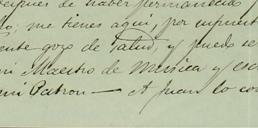 después de haber permanecido
lo; me tienes aquí, por supuest
ente gozo de salud, y puedo se
mi Maestro de Musica y es
mi Patron — A Juan lo co